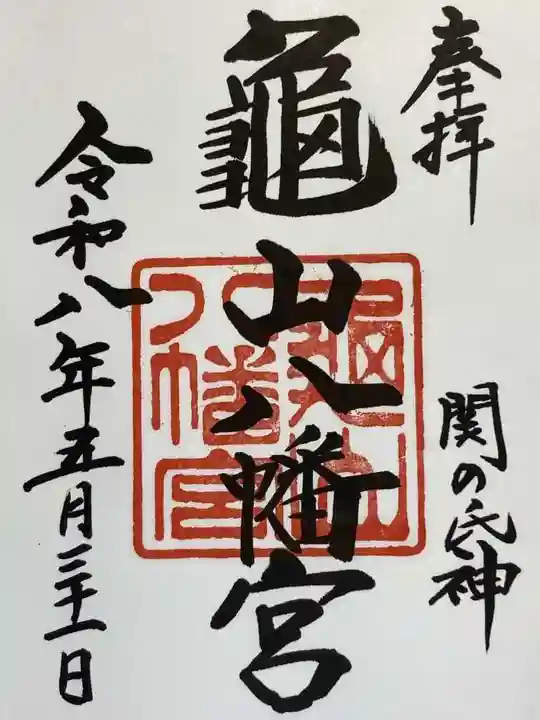 奉拝
関の氏神
龜山八幡宮
龜山
八幡宮
令和八年五月三十一日